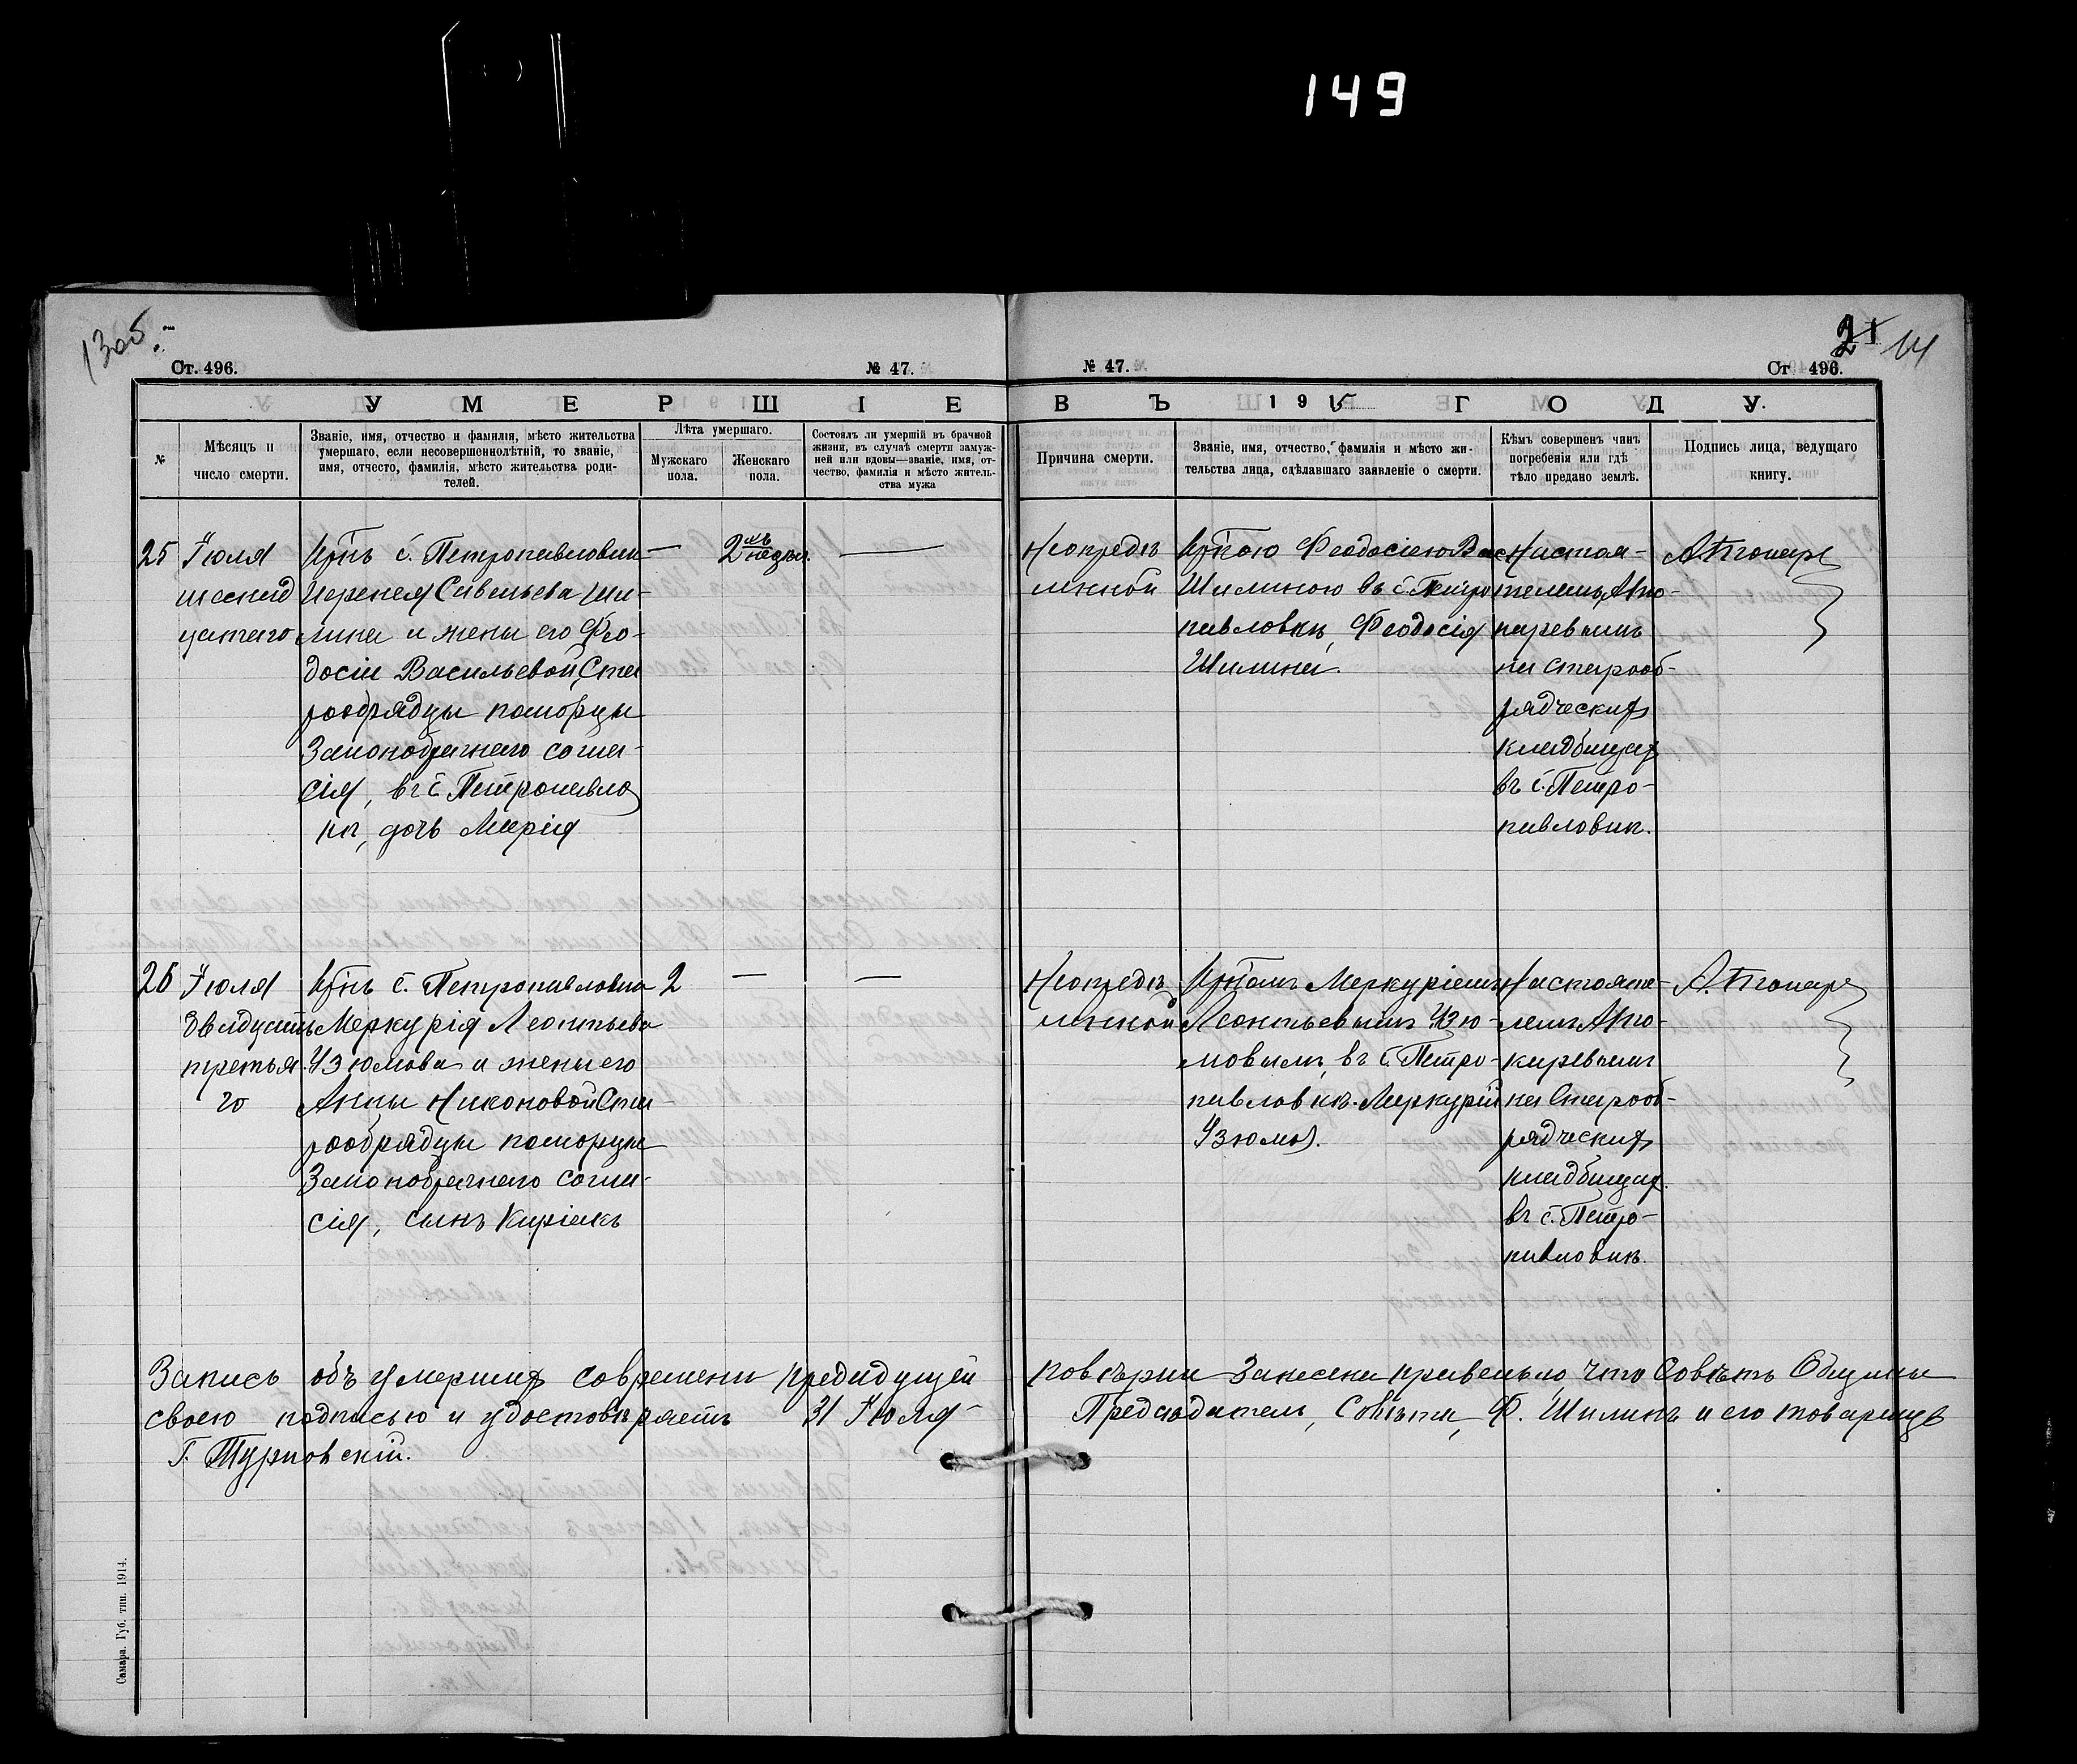 149
1305.
От. 496.
№ 47.
№ 47.
Ст 496.
21
14
У М Е Р Ш І Е
В Ъ 1915 Г О Д У.
№
Мѣсяцъ и
число смерти.
Званіе, имя, отчество и фамилія, мѣсто жительства
умершаго, если несовершеннолѣтній, то званіе,
имя, отчесто, фамилія, мѣсто жительства роди-
телей.
Лѣта умершаго.
Мужскаго
пола.
Женскаго
пола.
Состоялъ ли умершій въ брачной
жизни, въ случаѣ смерти замуж-
ней или вдовы—званіе, имя, от-
чество, фамилія и мѣсто житель-
ства мужа
Причина смерти.
Званіе, имя, отчество, фамилія и мѣсто жи-
тельства лица, сдѣлавшаго заявленіе о смерти.
Кѣмъ совершенъ чинъ
погребенія или гдѣ
тѣло предано землѣ.
Подпись лица, ведущаго
книгу.
25
Іюля
шеснад
цатаго
Крнъ с. Петропавловки
Иеренея Савельева Ши-
лина и жены его Фео-
досіи Васильевой, Ста
рообрядцы поморцы
Законобрачнаго согла-
сія, въ с. Петропавло
кѣ, дочь Марія
—
2 недѣл.
—
Неопредѣ
ленной
Крною Феодосіею Вас
Шилиною въ с. Петро
павловкѣ, Феодосія
Шилина.
Настоя-
телемъ
на старооб-
рядческихъ
кладбищахъ
въ с. Петро-
павловкѣ.
26
Іюля
двадцать
третья
го
Крнъ с. Петропавловка
Меркурія Леонтьева
Изюмова и жены его
Анны Никоновой Ста-
рообрядцы поморцы
Законобрачнаго согла-
сія, сынъ Киріакъ
2
—
—
Неопредѣ
ленной
Крномъ Меркуріемъ
Леонтьевымъ Изю-
мовымъ, въ с. Петро-
павловкѣ. Меркурій
Изюмов.
Настояте-
лемъ
на Старооб-
рядческихъ
кладбищахъ.
въ с. Петро-
павловкѣ.
Запись объ умершихъ современи предидущей повѣрки занесена правельно, что Совѣтъ Общины
своею подписью и удостовѣряетъ 31 Іюля Предсѣдатель Совѣта, Ф. Шилинъ и его товарищъ
Г. Турповскій.
Самара. Губ. тип. 1914.